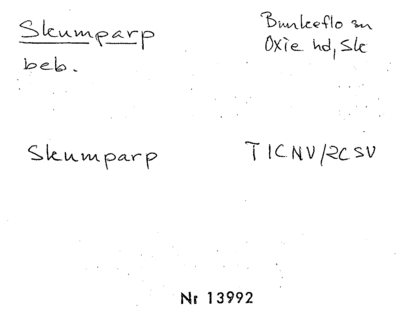 Skumparp
beb.
Bunkeflo sn
Oxie hd, Sk
Skumparp
T1CNV/2CSV
Nr 13992